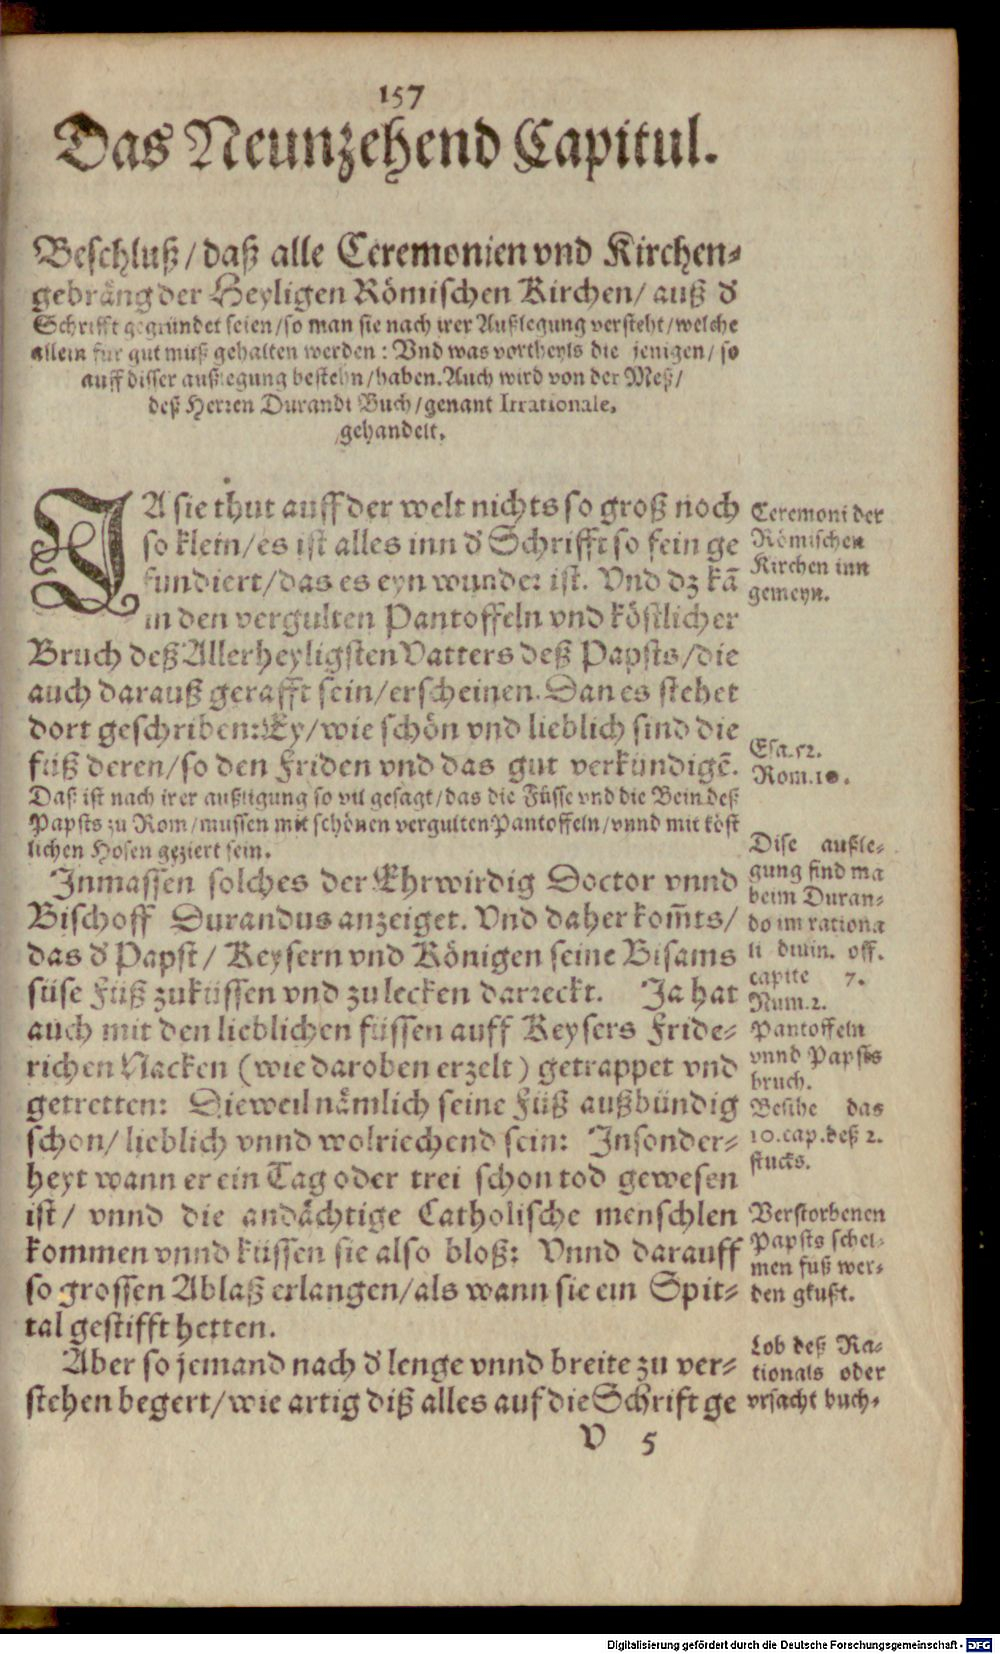 157
Das Neunzehend Capitul.
Beschluß/daß alle Ceremonien vnd Kirchen-
gebräng der Heyligen Römischen Kirchen/ auß d'
Schrifft gegründet seien/so man sie nach irer Außlegung versteht/welche
allein für gut muß gehalten werden: Vnd was vortheyls die jenigen/ so
auff disser außlegung bestehn/haben. Auch wird von der Meß/
deß Herren Durandi Buch/genant Irrationale,
gehandelt.
JA sie thut auff der welt nichts so groß noch
so klein/es ist alles inn d' Schrifft so fein ge
fundiert/das es eyn wunder ist. Vnd dz kā
in den vergulten Pantoffeln vnd köstlicher
Bruch deß Allerheyligsten Vatters deß Papsts/die
auch darauß gerafft sein/erscheinen. Dan es stehet
dort geschriben: Ey/wie schön vnd lieblich sind die
füß deren/so den Friden vnd das gut verkündigē.
Daß ist nach irer außligung so vil gesagt/das die Füsse vnd die Bein deß
Papsts zu Rom/mussen mit schönen vergulten Pantoffeln/vnnd mit köst
lichen Hosen geziert sein.
Inmassen solches der Ehrwirdig Doctor vnnd
Bischoff Durandus anzeiget. Vnd daher kom̄ts/
das d' Papst/ Keysern vnd Königen seine Bisams
süse Füß zuküssen vnd zu lecken darreckt. Ja hat
auch mit den lieblichen füssen auff Keysers Fride-
richen Nacken (wie daroben erzelt) getrappet vnd
getretten: Dieweil nämlich seine Füß außbündig
schon/ lieblich vnnd wolriechend sein: Insonder-
heyt wann er ein Tag oder trei schon tod gewesen
ist/ vnnd die andächtige Catholische menschlen
kommen vnnd küssen sie also bloß: Vnnd darauff
so grossen Ablaß erlangen/als wann sie ein Spit-
tal gestifft hetten.
Aber so jemand nach d' lenge vnnd breite zu ver-
stehen begert/wie artig diß alles auf die Schrift ge
V 5
Ceremoni der
Römischen
Kirchen inn
gemeyn.
Esa.52.
Rom.10.
Dise außle-
gung find ma
beim Duran-
do im rationa
li diuin. off.
capite 7.
Num.2.
Pantoffeln
vnnd Papsts
bruch.
Besihe das
10.cap.deß 2.
stucks.
Verstorbenen
Papsts schel-
men fuß wer-
den gkußt.
Lob deß Ra-
tionals oder
vrsacht buch.
Digitalisierung gefördert durch die Deutsche Forschungsgemeinschaft - DFG